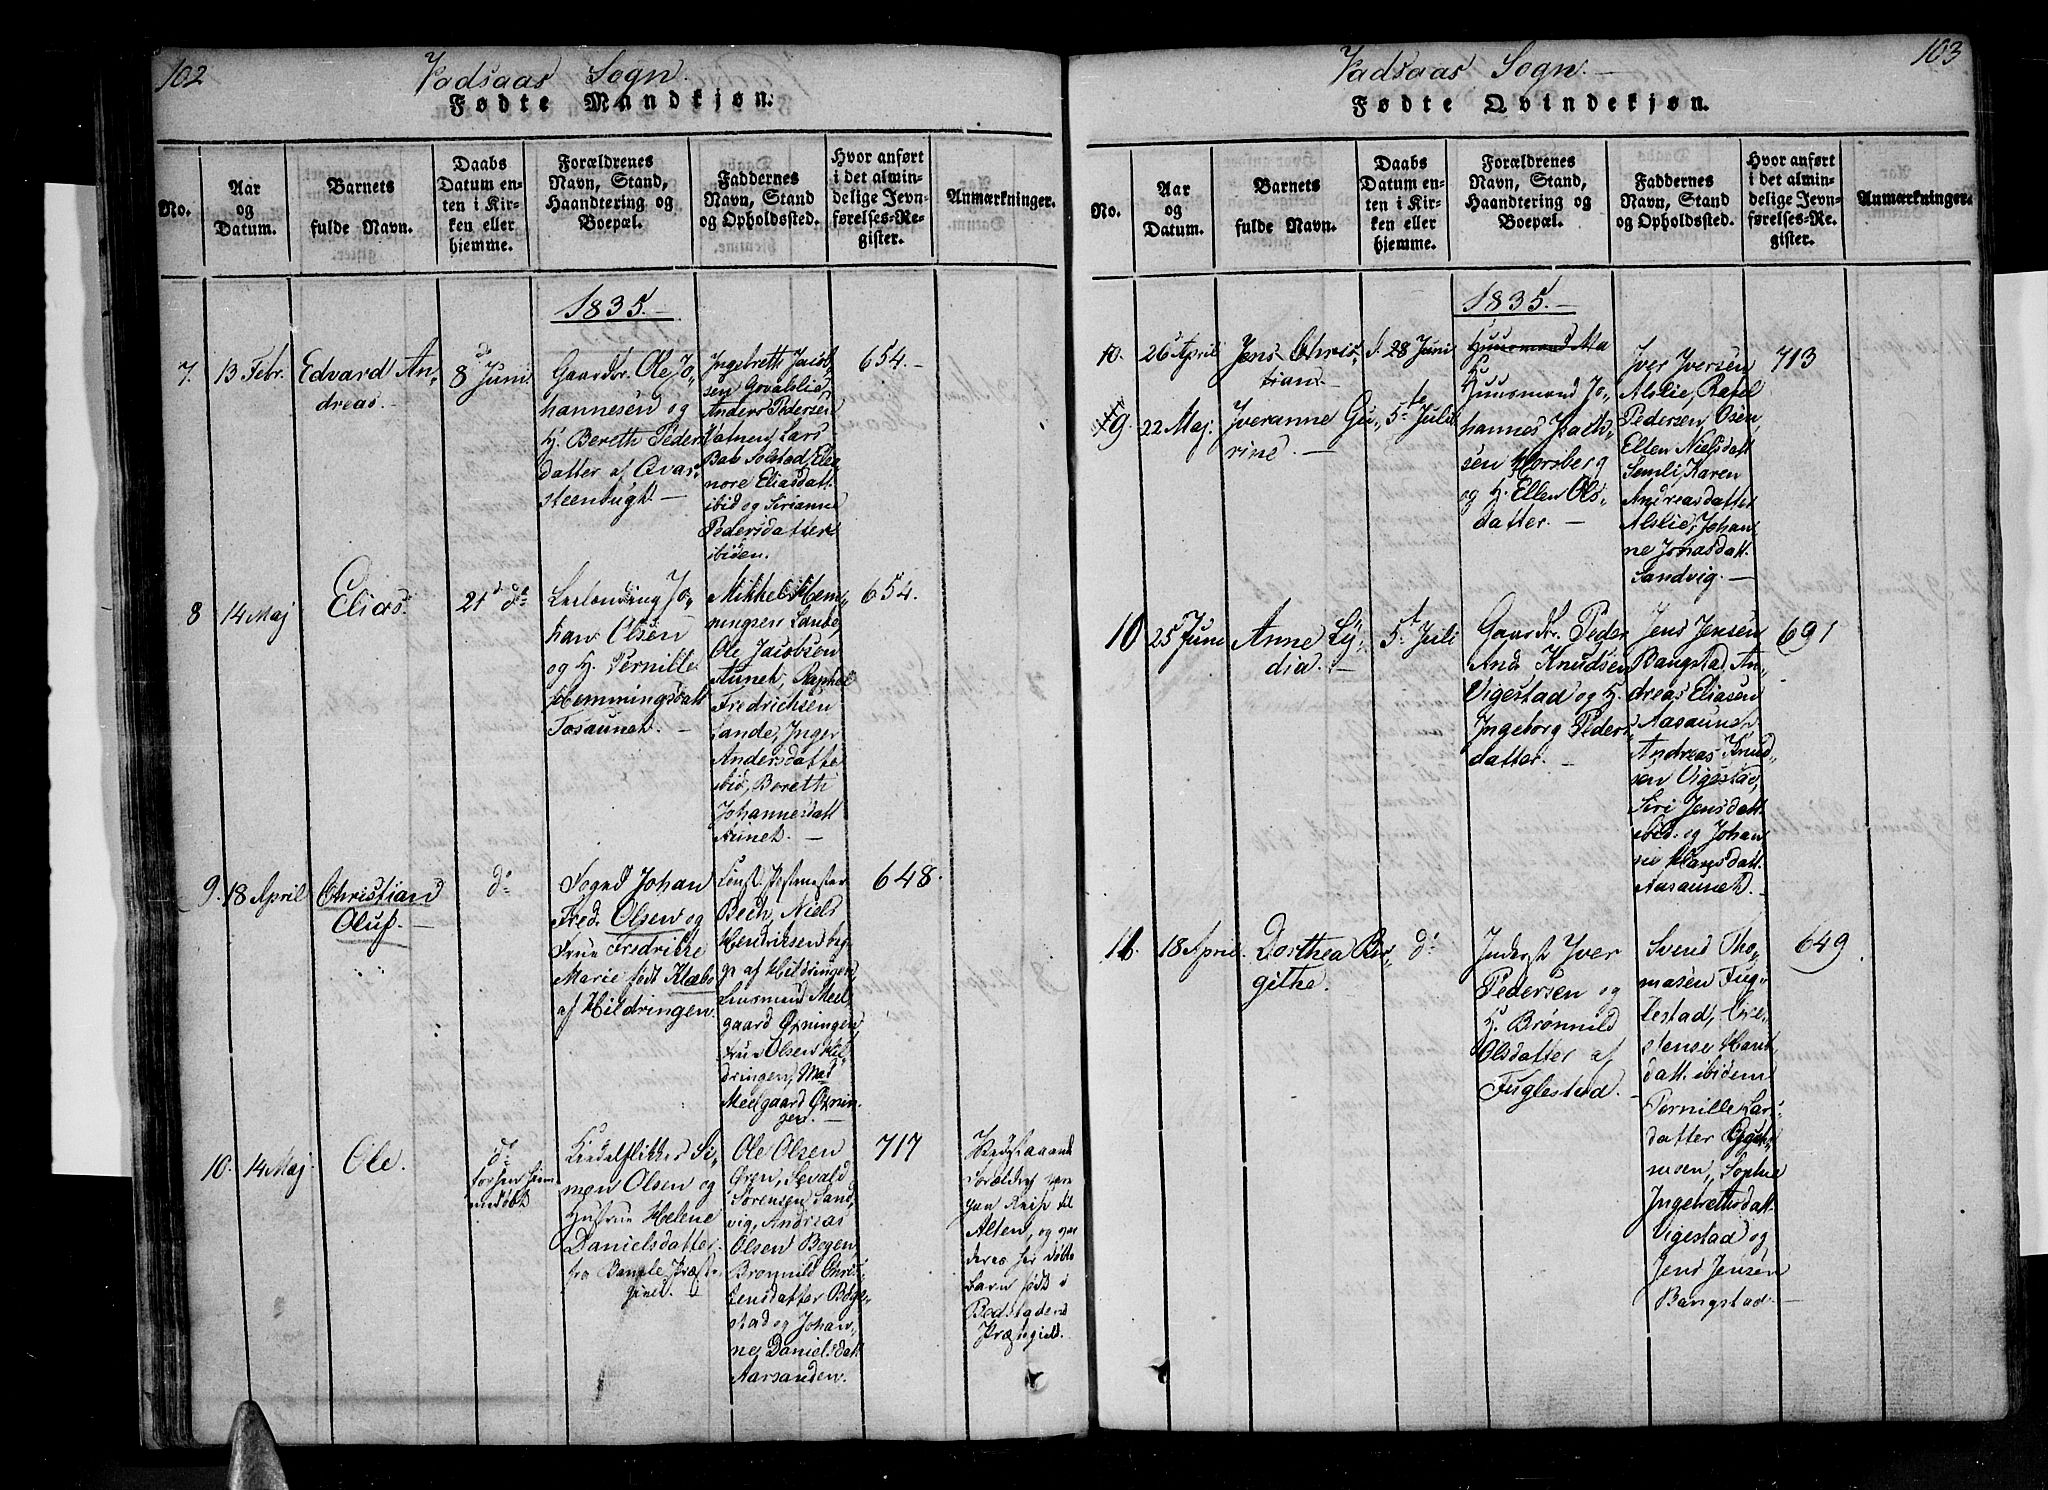 102
Vadsaas Sogn.
Fødte Mandkjøn.
No.
Aar
og
Datum.
Barnets
fulde Navn.
Daabs
Datum en-
ten i Kir-
ken eller
hjemme.
Forældrenes
Navn, Stand,
Haandtering og
Boepæl.
Faddernes
Navn, Stand
og Opholdssted.
Hvor anført
i det almin-
delige Jevn-
førelses-Re-
gister.
Anmærkninger.
1835.
7.
13 Febr.
Edvard An-
dreas.
8de Juni.
Gaardbr. Ole Jo-
hannesen og
H. Bereth Peders
datter af
Ingebreth Jacob-
sen
Anders Pedersen
Vatnen, Lars
Solstad, Ele-
nore Eliasdatt.
ibid og Sirianne
Pedersdatter
ibiden.
654.
8
14 Maj
Elias.
21de ds
Jo-
han Olsen
og H. Pernille
Hemmingsdatt
Tosaunet.
Mikkel Hem-
mingsen Lande,
Ole Jacobsen
Aunet, Raphel
Fredrichsen
Lande, Inger
Andersdatte
ibid, Bereth
Johannesdatt
Aunet.
654.
9.
18 April
Christian
Oluf.
ds
Foged Johan
Fred. Olsen og
Frue Fredrikke
Marie født Klæbo
af Hildringen.
Const. Postmester
Bech, Niels
Hendriksen
af Hildringen,
Meel-
gaard Øxningen,
Frue Olsen Hil-
dringen, Mad
Meelgaard Øxnin-
gen.
648.
10.
14 Maj.
Ole.
ds
Si-
mon Olsen og
Hustrue Helene
Danielsdatter
fra Præste-
gield.
Ole Olsen
Øren, Sevald
Sørensen Sand-
vig, Andreas
Olsen Bogen,
Brønnild Chris-
tensdatter Bøge-
stad og Johan-
ne Danielsdatt
Aarsanden.
717
Forældre
paa Reise til
Alten, og
deres her døbte
Barn født i
Præstegield.
103
Vadsaas Sogn.
Fødte Qvindekjøn.
No.
Aar
og
Datum.
Barnets
fulde Navn.
Daabs
Datum en-
ten i Kir-
ken eller
hjemme.
Forældrenes
Navn, Stand,
Haandtering og
Boepæl.
Faddernes
Navn, Stand
og Opholdssted.
Hvor anført
i det almin-
delige Jevn-
førelses-Re-
gister.
Anmærkninger.
1835.
10.
26 April
Jens Chris-
tian
d. 28 Juni
Huusmand Ma
9.
22 Maj.
Iveranne Gu-
rine.
5te Juli
Huusmand Jo-
hannes
sen Horsberg
og H. Ellen Ols-
datter.
Iver Iversen
Alslie, Rafel
Pedersen, Osen
Ellen Nielsdatt
Semli, Karen
Andreasdatter
Alslie, Johan-
ne Jonasdatt.
Sandvig.
713
10
25 Juni
Anne Ly-
dia.
5te Juli
Gaardbr. Peder
And. Knudsen
Vigestad og H.
Ingeborg Peders-
datter.
Jens Jensen
Bangstad, An-
dreas Eliasen
Aasaunet,
Andreas Knud-
sen Vigestad,
Siri Jensdatt
ibid. og Johan-
ne Hansdatt
Aasaunet.
691
11.
18 April.
Dorthea Bir-
githe.
ds
Inderst Iver
Pedersen og
H. Brønnild
Olsdatter af
Fuglestad.
Svend Tho-
masen Fug-
lestad,
datt. ibidem
Pernille Lars-
datter
moen, Sophie
Ingebrethsdatt.
Vigestad og
Jens Jensen
Bangstad.
649